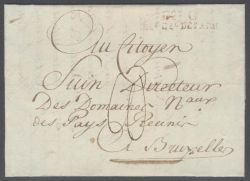 Au Citoyen
Directeur
Des Domaines Naux
des Pays Reunis
A Bruxelles